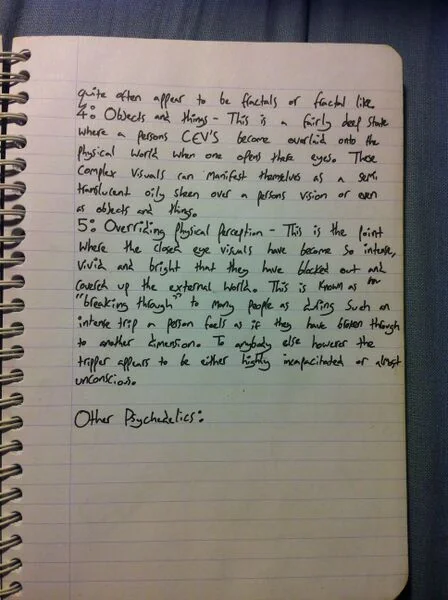 quite often appear to be fractals or fractal like.
4: Objects and things - This is a fairly deep state
where a persons CEV'S become overlaid onto the
physical world when one opens there eyes. These
complex visuals can manifest themselves as a semi
translucent oily sheen over a persons vision or even
as objects and things.
5: Overriding physical perception - This is the point
where the closed eye visuals have become so intense,
vivid and bright that they have blocked out and
covered up the external world. This is known as
"breaking through" to many people as during such an
intense trip a person feels as if they have broken through
to another dimension. To anybody else however the
tripper appears to be either highly incapacitated or almost
unconscious.
Other Psychedelics: